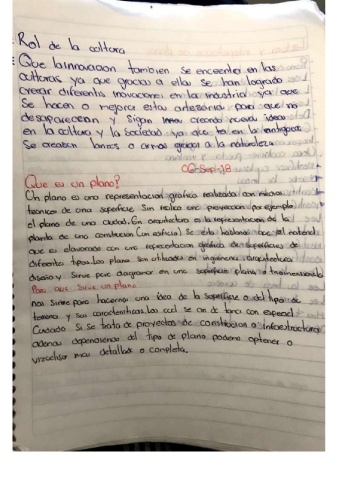 Rol de la cultura
Que la innovacion tambien se encuentra en las
culturas ya que gracias a ellas se han logrado
crear diferentes inovaciones en la industria ya que
Se hacen o mejora estas artesania para que no
desaparezcan y Sigan creando nuevas ideas
en la cultura y la Sociedad ya que tal en la antigua
Se creaban barcos o armas gracias a la naturaleza
06-Sep-18
Que es un plano?
Un plano es una representacion grafica realizada con
tecnicos de una superficie. Sin realice una proyeccion por ejemplo
el plano de una ciudad. En arquitectura es la representacion de la
planta de una construccion (un edificio) Se esta hablando que el material
que es elavorado con una representacion grafica de superficies de
diferentes tipos. Los planos son utilizados en ingenieria, arquitectura
diseño y Sirve para diagramar en una superficie plana o tridimensional
Para que Sirve un plano
nos Sirve para hacernos una idea de la superficie o del tipo de
terreno y sus caracteristicas. Lo cual se an de tomar con especial
Cuidado Si se trata de proyectos de construccion o infraestructura
ademas dependiendo del tipo de plano podemos optener o
vizualisar mas detallada o completa.